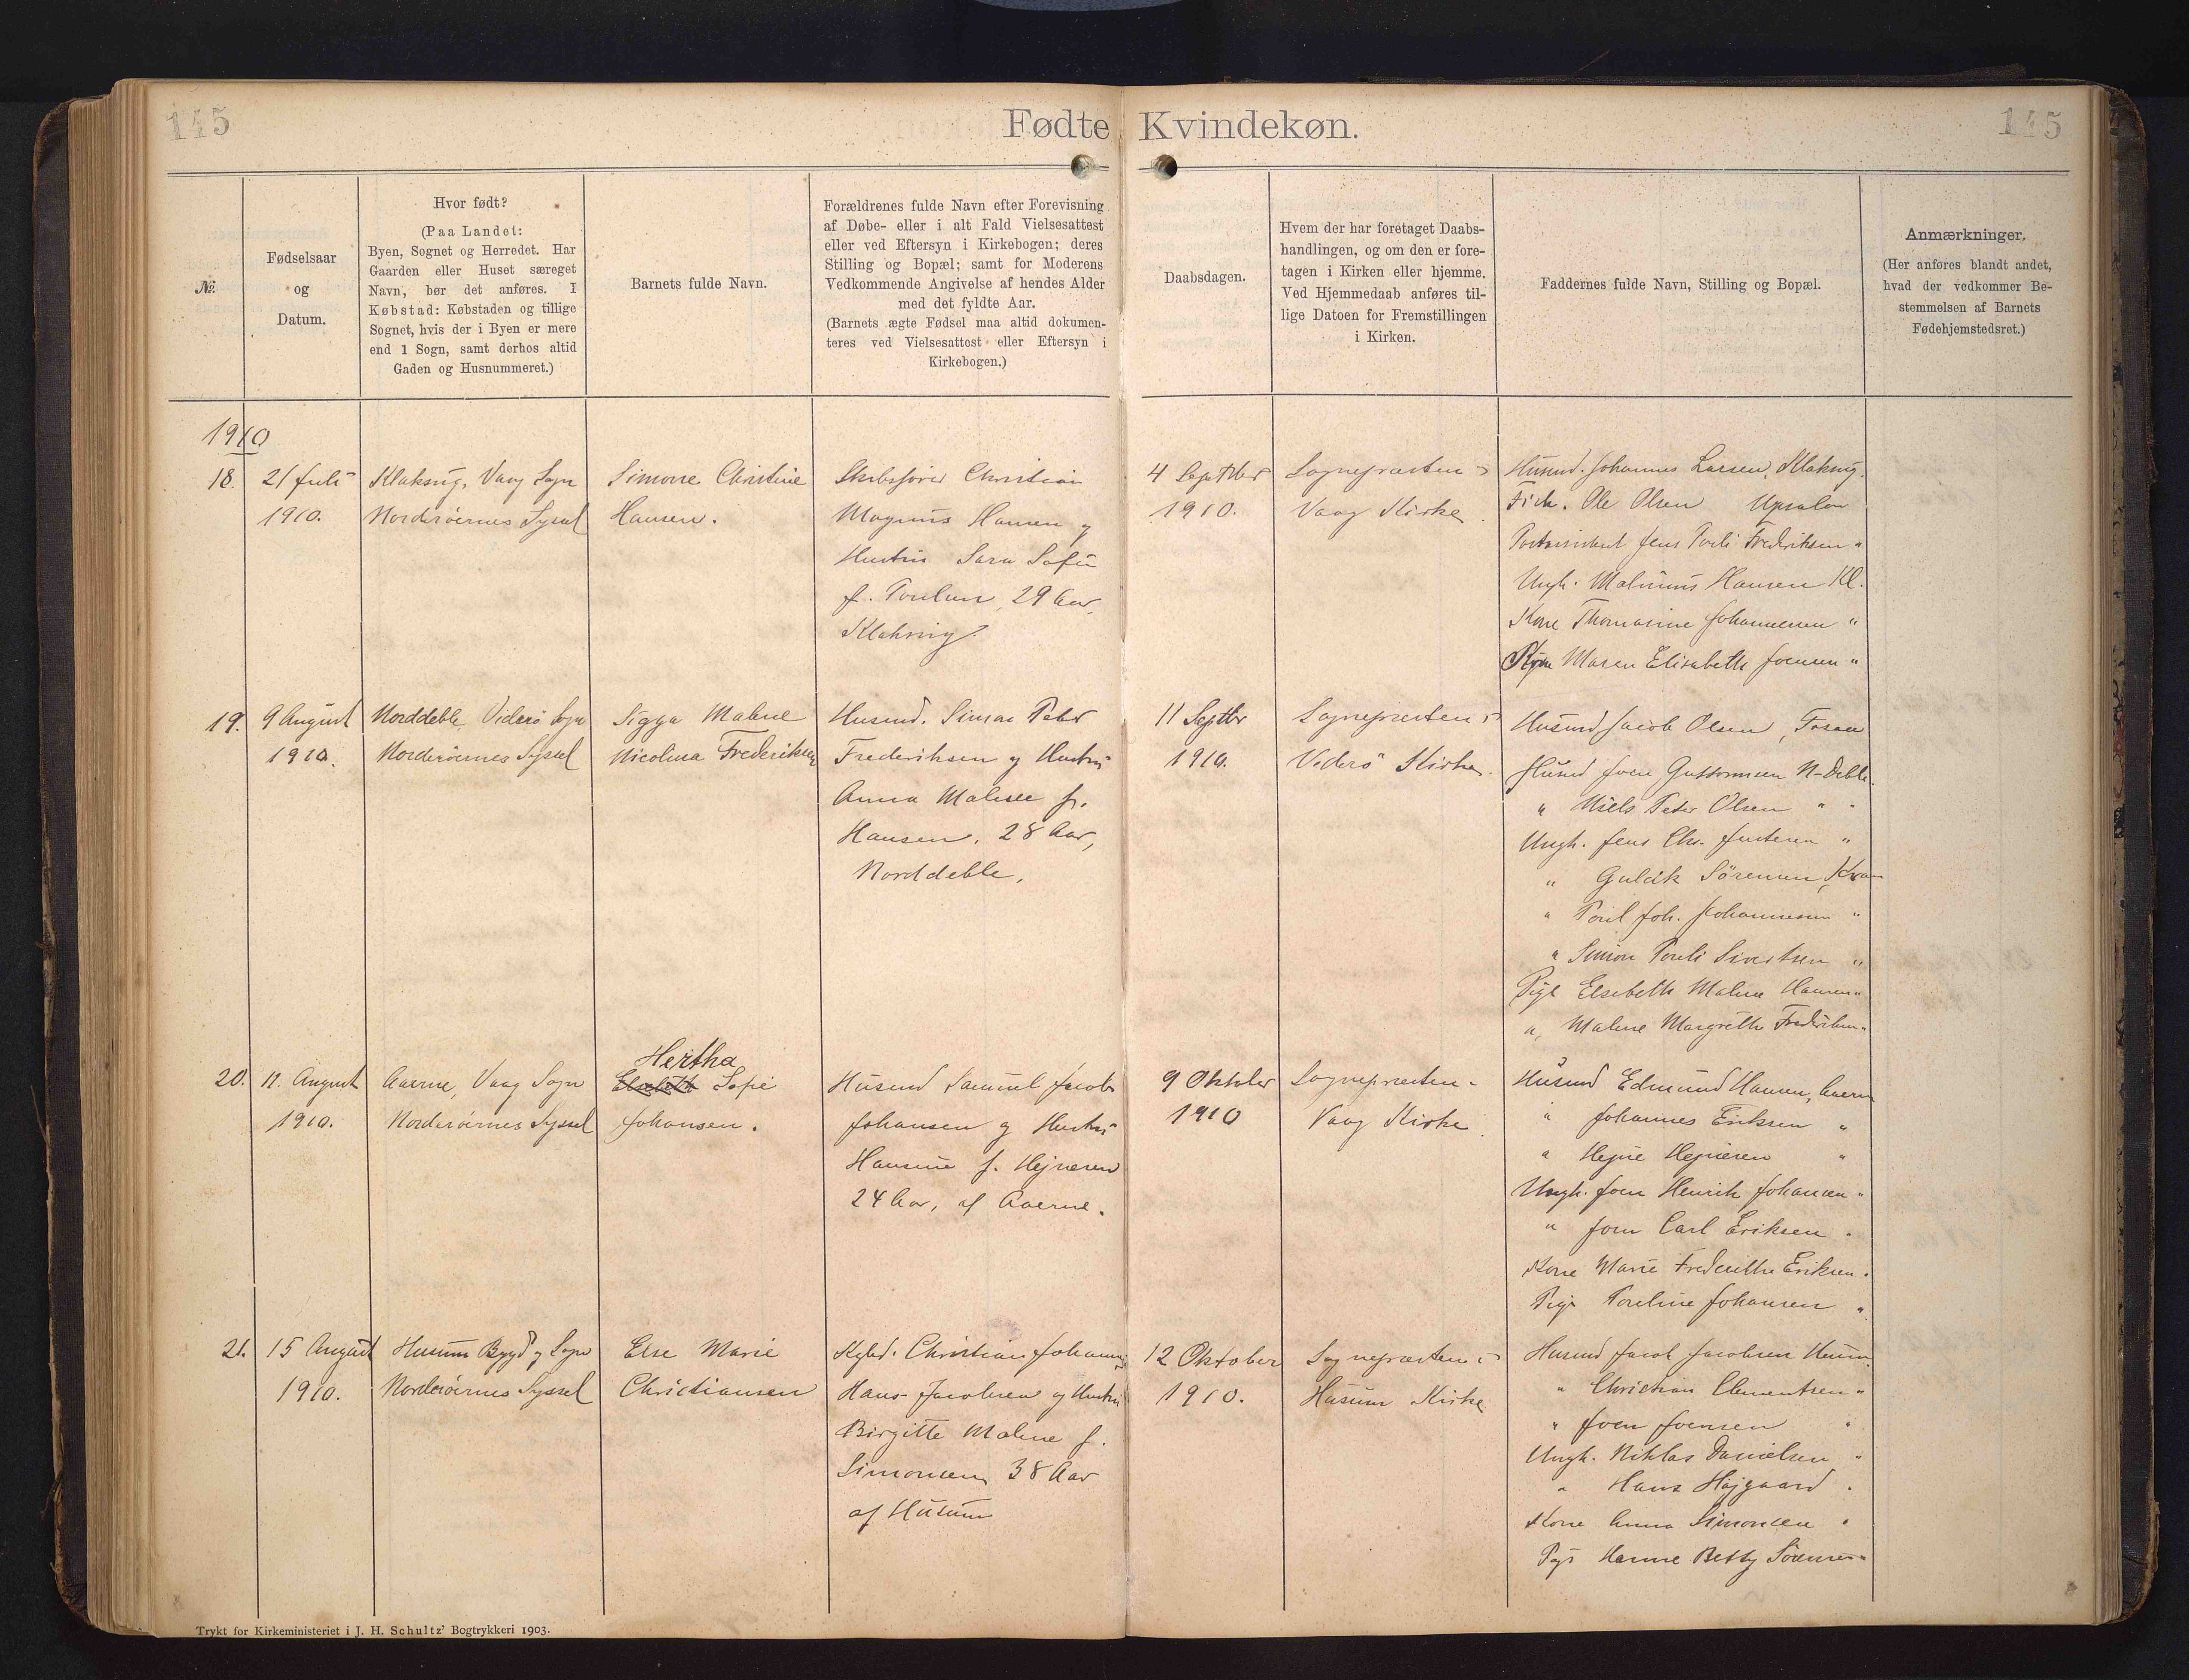 145
Fødte Kvindekøn.
145
№.
Fødselsaar
og
Datum.
Hvor født?
(Paa Landet:
Byen, Sognet og Herredet. Har
Gaarden eller Huset særeget
Navn, bør det anføres. I
Købstad: Købstaden og tillige
Sognet, hvis der i Byen er mere
end 1 Sogn, samt derhos altid
Gaden og Husnummeret.)
Barnets fulde Navn.
Forældrenes fulde Navn efter Forevisning
af Døbe- eller i alt Fald Vielsesattest
eller ved Eftersyn i Kirkebogen; deres
Stilling og Bopæl; samt for Moderens
Vedkommende Angivelse af hendes Alder
med det fyldte Aar.
(Barnets ægte Fødsel maa altid dokumen-
teres ved Vielsesattest eller Eftersyn i
Kirkebogen.)
Daabsdagen.
Hvem der har foretaget Daabs-
handlingen, og om den er fore-
tagen i Kirken eller hjemme.
Ved Hjemmedaab anføres til-
lige Datoen for Fremstillingen
i Kirken.
Faddernes fulde Navn, Stilling og Bopæl.
Anmærkninger.
(Her anføres blandt andet,
hvad der vedkommer Be-
stemmelsen af Barnets
Fødehjemstedsret.)
1910
18.
21 Juli
1910.
Klaksvig, Vaag Sogn
Norderöernes Syssel
Simone Christine
Hansen.
Skibsfører Christian
Magnus Hansen og
Hustru Sara Sofie
f. Poulsen, 29 Aar,
Klaksvig.
4 Septber
1910.
Sognepræsten i
Vaag Kirke
Husmd. Johannes Larsen, Klaksvig.
Fisk. Ole Olsen
Postassistent Jens Pauli Frederiksen "
Ungk. Malvinus Hansen Kl.
Kone Thomasine Johannesen "
Maren Elisabeth Joensen "
19.
9 August
1910.
Norddeble, Viderö Sogn
Norderöernes Syssel
Sigga Malene
Nicolina Frederiksen
Husmd. Simon Peter
Frederiksen og Hustru
Anna Malene f.
Hansen, 28 Aar,
Norddeble.
11 Septbr
1910.
Sognepræsten i
Viderö Kirke.
Husmd Jacob Olsen,
Husmd Joen Guttormsen N-Deble
" Niels Peter Olsen " "
Ungk. Jens Chr. "
" Sörensen,
" Poul Joh. Johannesen "
" Simon Pouli Sivertsen "
Pige Elsebeth Malene Hansen "
" Malene Margrethe Frederiksen "
20.
11. August
1910.
Aaerne, Vaag Sogn
Norderöernes Syssel
Hertha
Elsebeth Sofie
Johansen.
Husmd Samuel Jacob
Johansen og Hustru
Hansine f. Hejnesen
24 Aar, af Aaerne.
9 Oktober
1910
Sognepræsten i
Vaag Kirke.
Husmd Edmund Hansen, Aaerne
" Johannes Eriksen "
" Hejne Hejnesen "
Ungk. Joen Henrik Johansen "
" Joen Carl Eriksen "
Kone Marie Frederikke Eriksen "
Pige Pouline Johansen "
21.
15 August
1910.
Husum Bygd og Sogn
Norderöernes Syssel
Else Marie
Christiansen
Christian Johannes
Hans Jacobsen og Hustru
Birgitte Malene f.
Simonsen 38 Aar
af Husum
12 Oktober
1910.
Sognepræsten i
Husum Kirke
Husmd Jacob Jacobsen Husum.
" Christian Clementsen "
" Joen Joensen "
Ungk. Niklas Danielsen "
" Hans Højgaard "
Kone Anna Simonsen "
Pige Hanne Betty Sörensen "
Trykt for Kirkeministeriet i J. H. Schultz' Bogtrykkeri 1903.